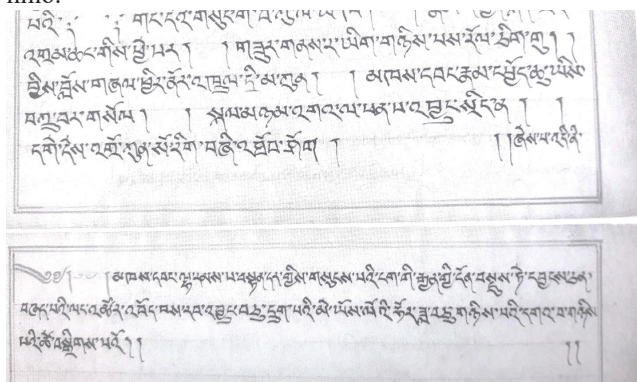 འགྲམ་ཆང་གིས་ཕྱེ་པར། ། གཟུར་གནས་ར་ཡིག་གཉིས་པས་རོལ་ཅིག་གུ། །
བྱིས་བློས་གཞལ་ཕྱིར་ནོར་འཁྲུལ་དྲི་མ་ཀུན། ། མཁས་དབང་རྣམ་དཔྱོད་ཆུ་ཡིས་
བཀྲུ་བར་གསོལ། ། སྐལ་མཉམ་འགའ་ལ་ཕན་པ་འབྱུང་སྲིད་ན། །
དགེ་དེས་འགྲོ་ཀུན་སོ་རིག་བཞི་འཐོབ་ཤོག ། །ཞེས་པ་འདི་ནི་
མཁས་དབང་ལྷ་རམས་པ་བསྟན་དར་གྱིས་གསུངས་པའི་ངག་གི་རྒྱན་གྱི་དོན་བསྡུས་ཏེ་དབྱངས་ཅན་
བཞད་པའི་ཕང་འཚོར་འབོད་པས་རབ་འབྱུང་བཅུ་དྲུག་པའི་མེ་ཡོས་ལོའི་ཧོར་ཟླ་བཅུ་གཉིས་པའི་དགའ་བ་གཉིས་
པའི་ཚེ་བསྒྲིགས་པའོ། །